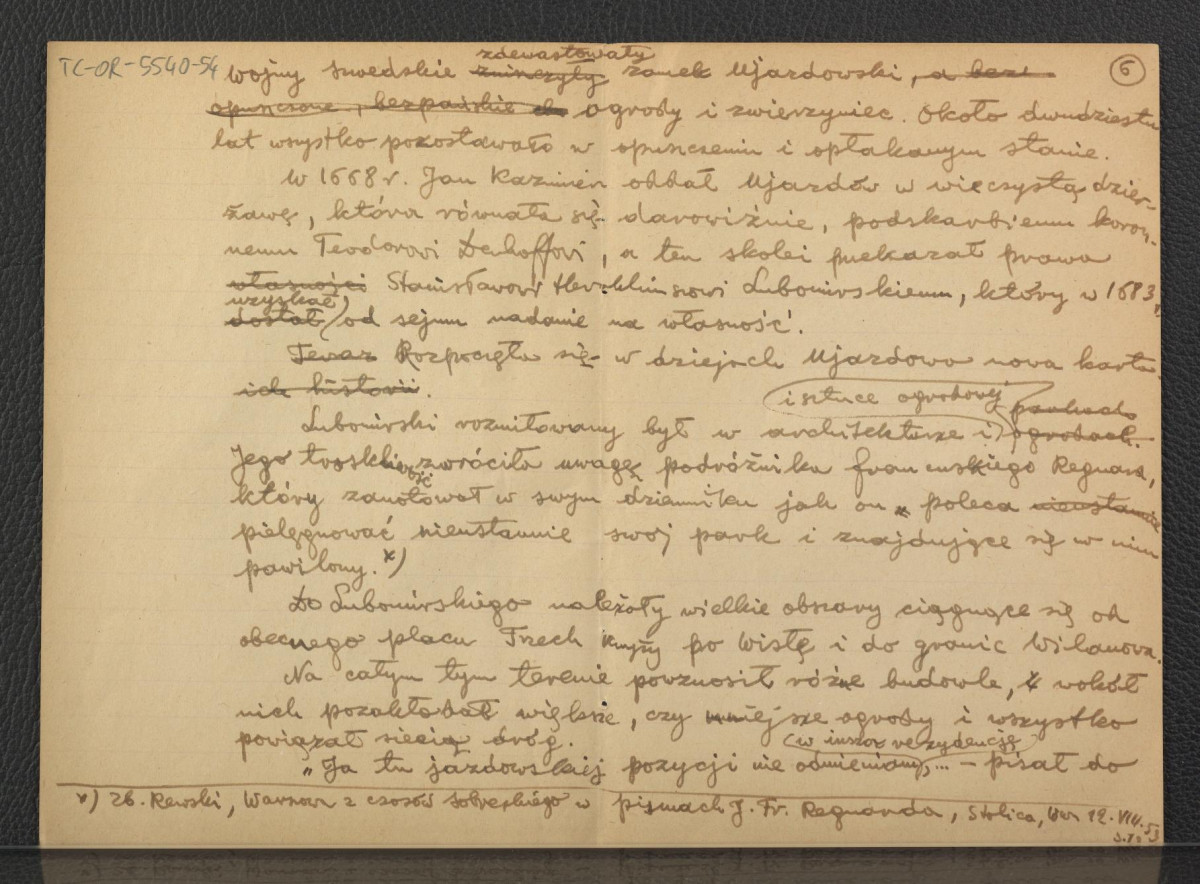 TC-OR-5540-54
6
zdewastowały
Wojny szwedzkie zniszczyły zamek Ujazdowski, a bez
opuszczone, bezpańskie ogrody i zwierzyniec. Około dwudziestu
lat wszystko pozostawało w opuszczeniu i opłakanym stanie.
W 1668 r. Jan Kazimierz oddał Ujazdów w wieczystą dzier-
żawę, która równała się darowiźnie, podskarbiemu koron-
nemu Teodorowi Denhoffowi, a ten skolei przekazał prawa
własności Stanisławowi Herakliuszowi Lubomirskiemu, który w 1683 r.
uzyskał
dostał od sejmu nadanie na własność.
Teraz Rozpoczęła się w dziejach Ujazdowa nowa karta
ich historii.
i sztuce ogrodowej parkach
Lubomirski rozmiłowany był w architekturze i ogrodach.
Jego troskliwość zwróciła uwagę podróżnika francuskiego Regnard,
który zanotował w swym dzienniku jak on „poleca nieustannie
pielęgnować nieustannie swój park i znajdujące się w nim
pawilony. x)
Do Lubomirskiego należały wielkie obszary ciągnące się od
obecnego placu Trzech Krzyży po Wisłę i do granic Wilanowa.
Na całym tym terenie powznosił różne budowle, i wokół
nich pozakładał większe, czy mniejsze ogrody i wszystko
powiązał siecią dróg.
(w inszą rezydencję)
„Ja tu jazdowskiej pozycji nie odmieniam,... - pisał do
x) Zb. Rewski, Warszawa z czasów Sobieskiego w pismach J. Fr. Regnarda, Stolica, War 12. VIII. 53
s. 12